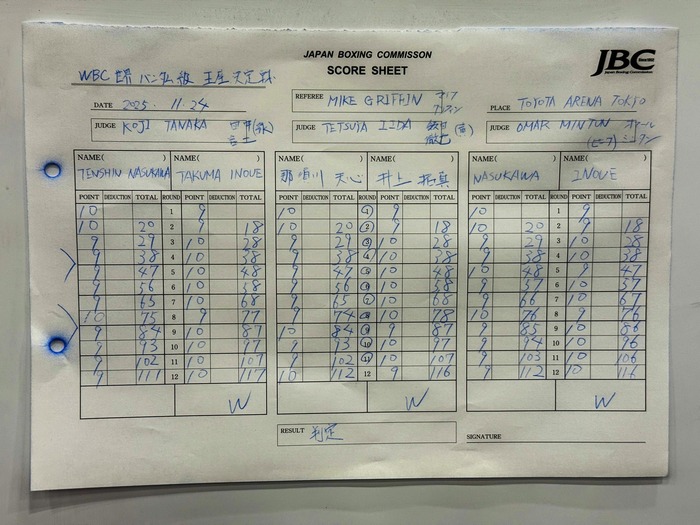 JAPAN BOXING COMMISSON
SCORE SHEET
JBC
Since 1952
Japan Boxing Commission
WBC 世界 バンタム級 王座決定戦
DATE 2025. 11.24
REFEREE MIKE GRIFFIN マイク グリフィン
PLACE TOYOTA ARENA TOKYO
JUDGE KOJI TANAKA 田中
JUDGE TETSUYA IIDA 飯田 徹也
JUDGE OMAR MINTUN オマール ミンタン
NAME( ) NAME( ) NAME( ) NAME( ) NAME( ) NAME( )
TENSHIN NASUKAWA TAKUMA INOUE 那須川 天心 井上 拓真 NASUKAWA INOUE
POINT DEDUCTION TOTAL ROUND POINT DEDUCTION TOTAL POINT DEDUCTION TOTAL ROUND POINT DEDUCTION TOTAL POINT DEDUCTION TOTAL ROUND POINT DEDUCTION TOTAL
10 1 9 10 1 9 10 1 9
10 20 2 9 18 10 20 2 9 18 10 20 2 9 18
9 29 3 10 28 9 29 3 10 28 9 29 3 10 28
9 38 4 10 38 9 38 4 10 38 9 38 4 10 38
9 47 5 10 48 9 47 5 10 48 10 48 5 9 47
9 56 6 10 58 9 56 6 10 58 9 57 6 10 57
9 65 7 10 68 9 65 7 10 68 9 66 7 10 67
10 75 8 9 77 9 74 8 10 78 10 76 8 9 76
9 84 9 10 87 10 84 9 9 87 9 85 9 10 86
9 93 10 10 97 9 93 10 10 97 9 94 10 10 96
9 102 11 10 107 9 102 11 10 107 9 103 11 10 106
9 111 12 10 117 10 112 12 9 116 9 112 12 10 116
W W W
RESULT 判定
SIGNATURE